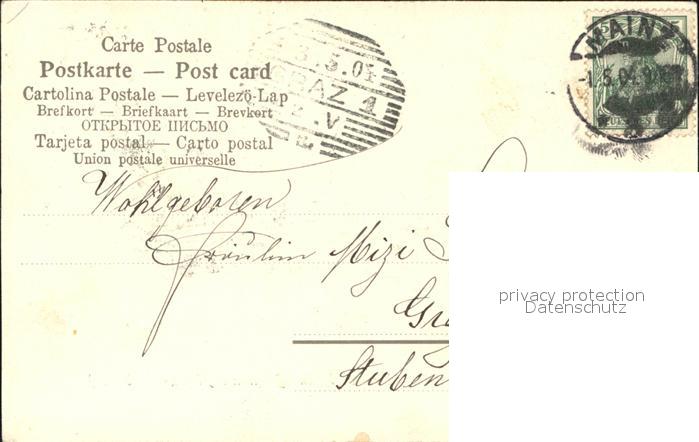 Carte Postale
Postkarte — Post card
Cartolina Postale — Levelező-Lap
Brefkort — Briefkaart — Brevkort
ОТКРЫТОЕ ПИСЬМО
Tarjeta postal — Carto postal
Union postale universelle
3.5.04
GRAZ 1
V
MAINZ
1.5.04
Wohlgeboren
Fräulein Mizi
Stuben
privacy protection
Datenschutz